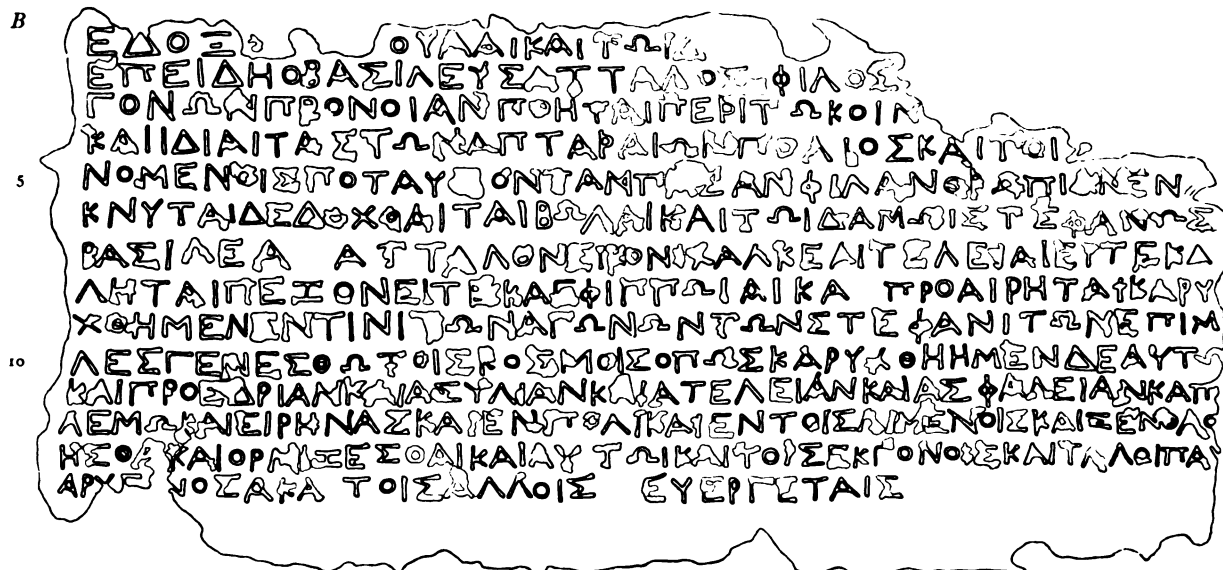 B
ΕΔΟΞ ΟΥΛΑΙΚΑΙΤΩΙΔ
ΕΠΕΙΔΗΟΒΑΣΙΛΕΥΣΑΤΤΑΛΟΣΦΙΛΟΣ
ΓΟΝΩΝΠΡΟΝΟΙΑΝΠΟΗΤΑΙΠΕΡΙΤΩΚΟΙΝ
ΚΑΙΙΔΙΑΙΤΑΣΤΩΝΑΠΤΑΡΑΙΩΝΠΟΛΙΟΣΚΑΙΤΟΙΣ
5 ΝΟΜΕΝΟΙΣΠΟΤΑΥΤΟΝΤΑΜΠΑΣΑΝΦΙΛΑΝΘΡΩΠΙΑΝΕΝ
ΚΝΥΤΑΙΔΕΔΟΧΘΑΙΤΑΙΒΩΛΑΙΚΑΙΤΩΙΔΑΜΩΙΣΤΕΦΑΝΩΣ
ΒΑΣΙΛΕΑ ΑΤΤΑΛΟΝΕΙΚΟΝΙΧΑΛΚΕΑΙΤΕΛΕΙΑΙΕΥΤΕΚΑ
ΛΗΤΑΙΠΕΞΟΝΕΙΤΕΚΑΕΦΙΠΠΩΙΑΙΚΑ ΠΡΟΑΙΡΗΤΑΙΚΑΡΥ
ΧΘΗΜΕΝΕΝΤΙΝΙΤΩΝΑΓΩΝΩΝΤΩΝΣΤΕΦΑΝΙΤΩΝΕΠΙΜ
10 ΛΕΣΓΕΝΕΣΘΩΤΟΙΣΚΟΣΜΟΙΣΟΠΩΣΚΑΡΥΧΘΗΗΜΕΝΔΕΑΥΤΩ
ΚΑΙΠΡΟΕΔΡΙΑΝΚΑΙΑΣΥΛΙΑΝΚΑΙΑΤΕΛΕΙΑΝΚΑΙΑΣΦΑΛΕΙΑΝΚΑΠ
ΛΕΜΩΚΑΙΕΙΡΗΝΑΣΚΑΙΕΝΠΟΛΙΚΑΙΕΝΤΟΙΣΛΙΜΕΝΟΙΣΚΑΙΞΕΝΟΛΟ
ΗΣΘΑΙΚΑΙΟΡΜΙΞΕΣΘΑΙΚΑΙΑΥΤΩΙΚΑΙΤΟΙΣΕΚΓΟΝΟΙΣΚΑΙΤΑΛΟΙΠΑ
ΑΡΥ ΝΟΣΑΚΑ ΤΟΙΣΑΛΛΟΙΣ ΕΥΕΡΓΕΤΑΙΣ